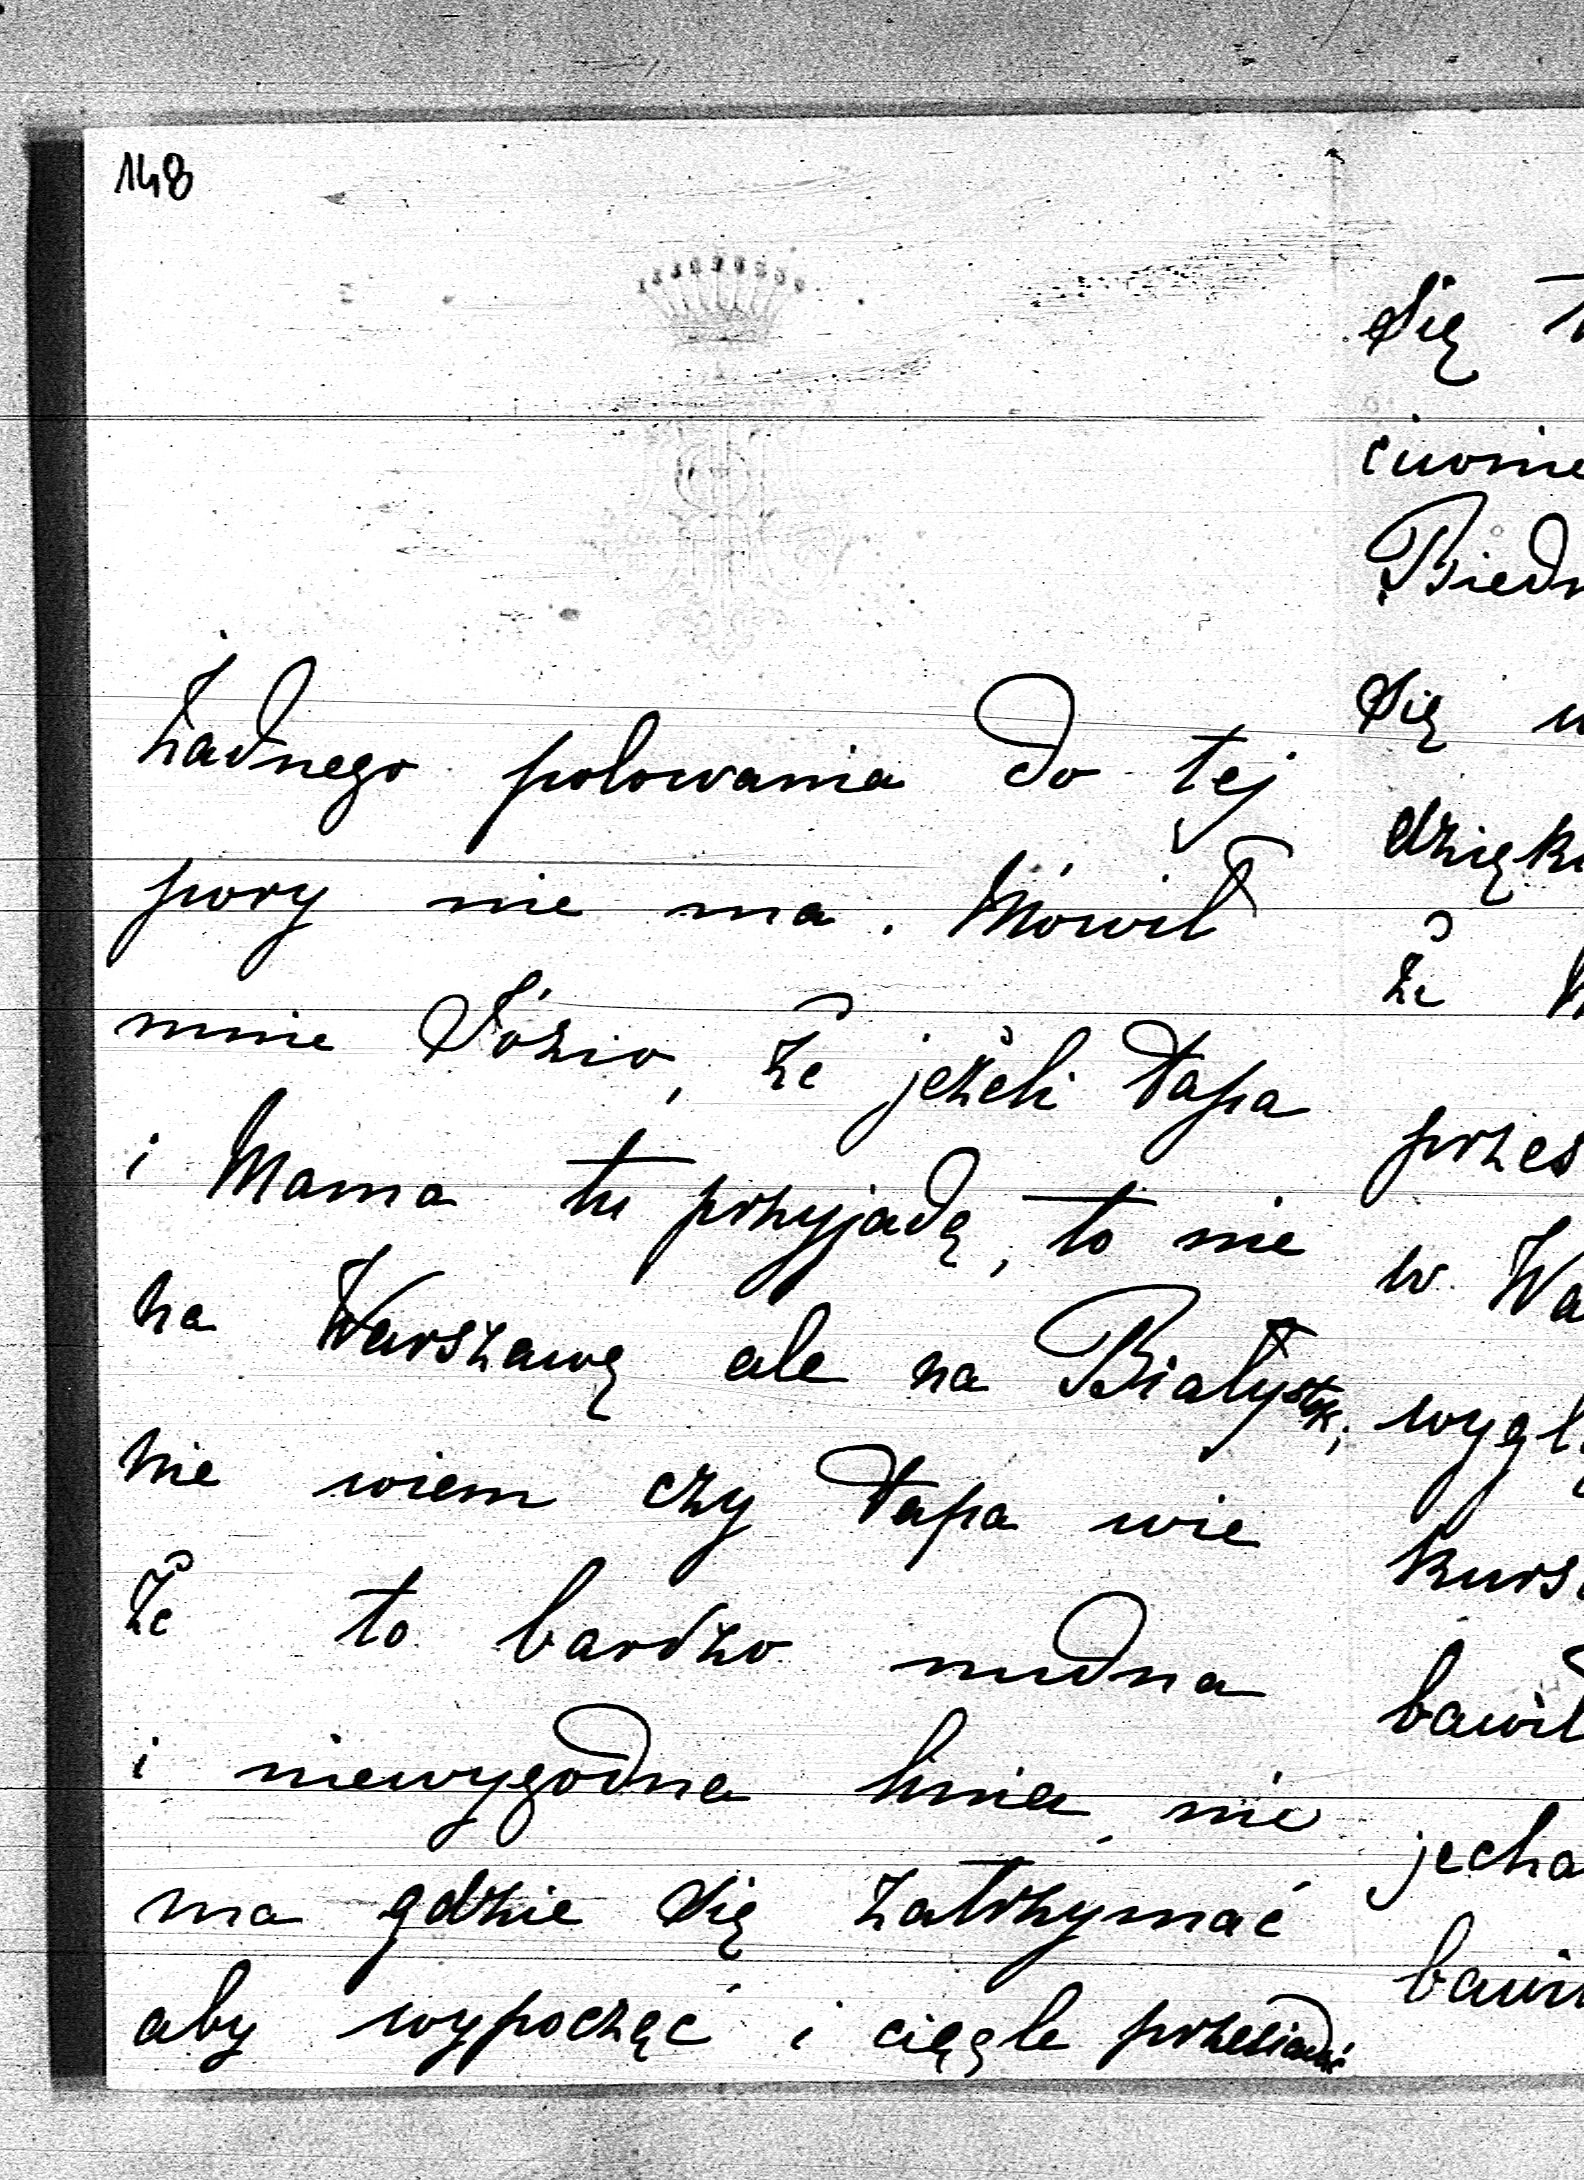 148
żadnego polowania do tej
pory nie ma. Mówił
mnie Józio, że jeżeli Papa
i Mama tu przyjadą, to nie
na Warszawę ale na Białystok;
nie wiem czy Papa wie
że to bardzo nudna
i niewygodna linia, nie
ma gdzie się zatrzymać
aby wypocząć i ciągle przesiadać
się
Biedn
się
dzięku
że
przes
w Wa
wyglą
kurs
bawił
jecha
bawi